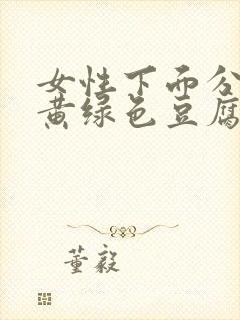 女性下面分
黄绿色豆腐
董毅